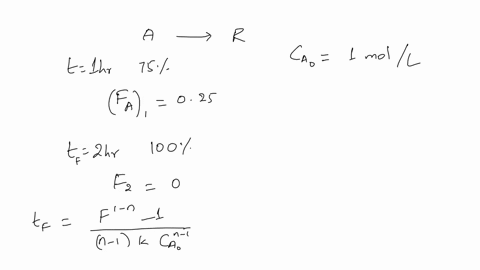 A → R
C_{A_0} = 1 mol/L
t=1hr 75%
(F_A)_1 = 0.25
t_F=2hr 100%
F_2 = 0
t_F = \frac{F^{1-n} - 1}{(n-1) k C_{A_0}^{n-1}}